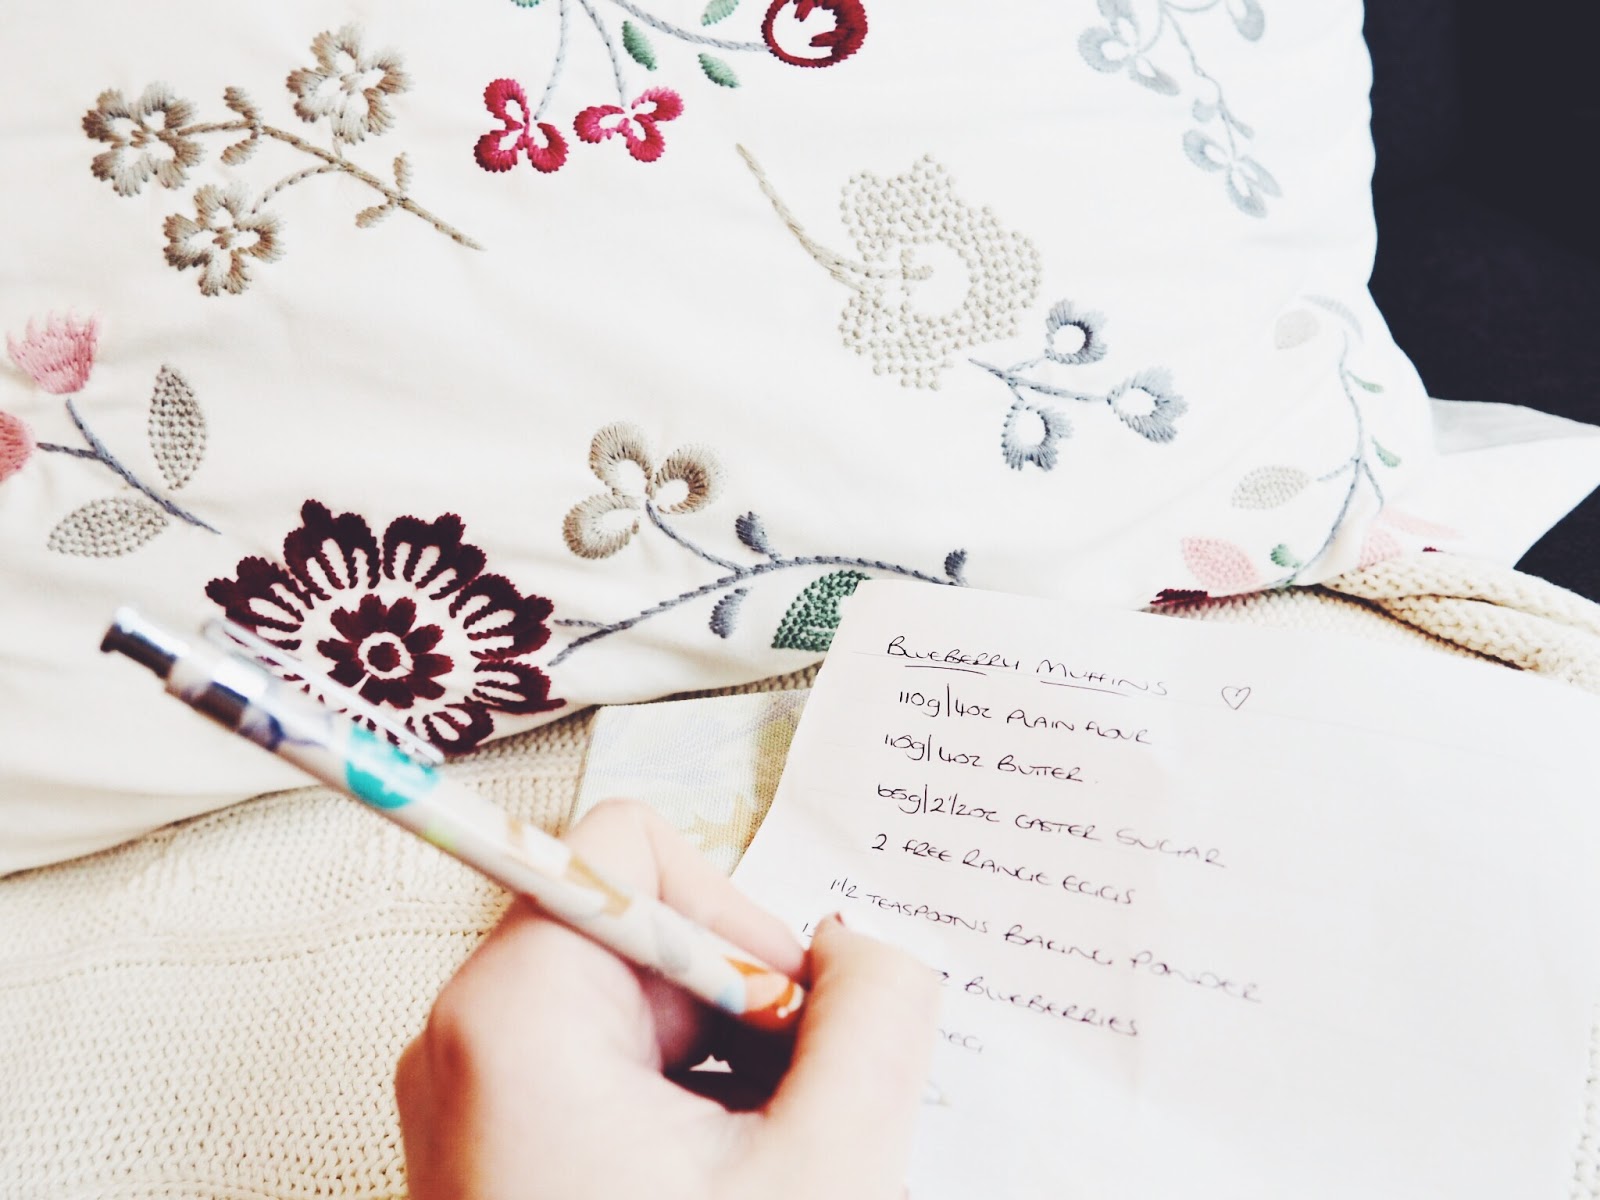 BLUEBERRY MUFFINS ♡
110g/4oz PLAIN FLOUR
110g/4oz BUTTER.
65g/2 1/2oz CASTER SUGAR
2 FREE RANGE EGGS
1 1/2 TEASPOONS BAKING POWDER
BLUEBERRIES